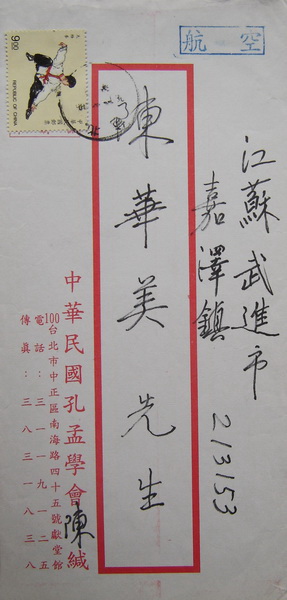 航空
江蘇武進市
嘉澤鎮
213153
陳華美先生
中華民國孔孟學會陳緘
100台北市中正區南海路四十五號獻堂館
電話：三一一九一二五
傳真：三八三一八三八
9.00
REPUBLIC OF CHINA